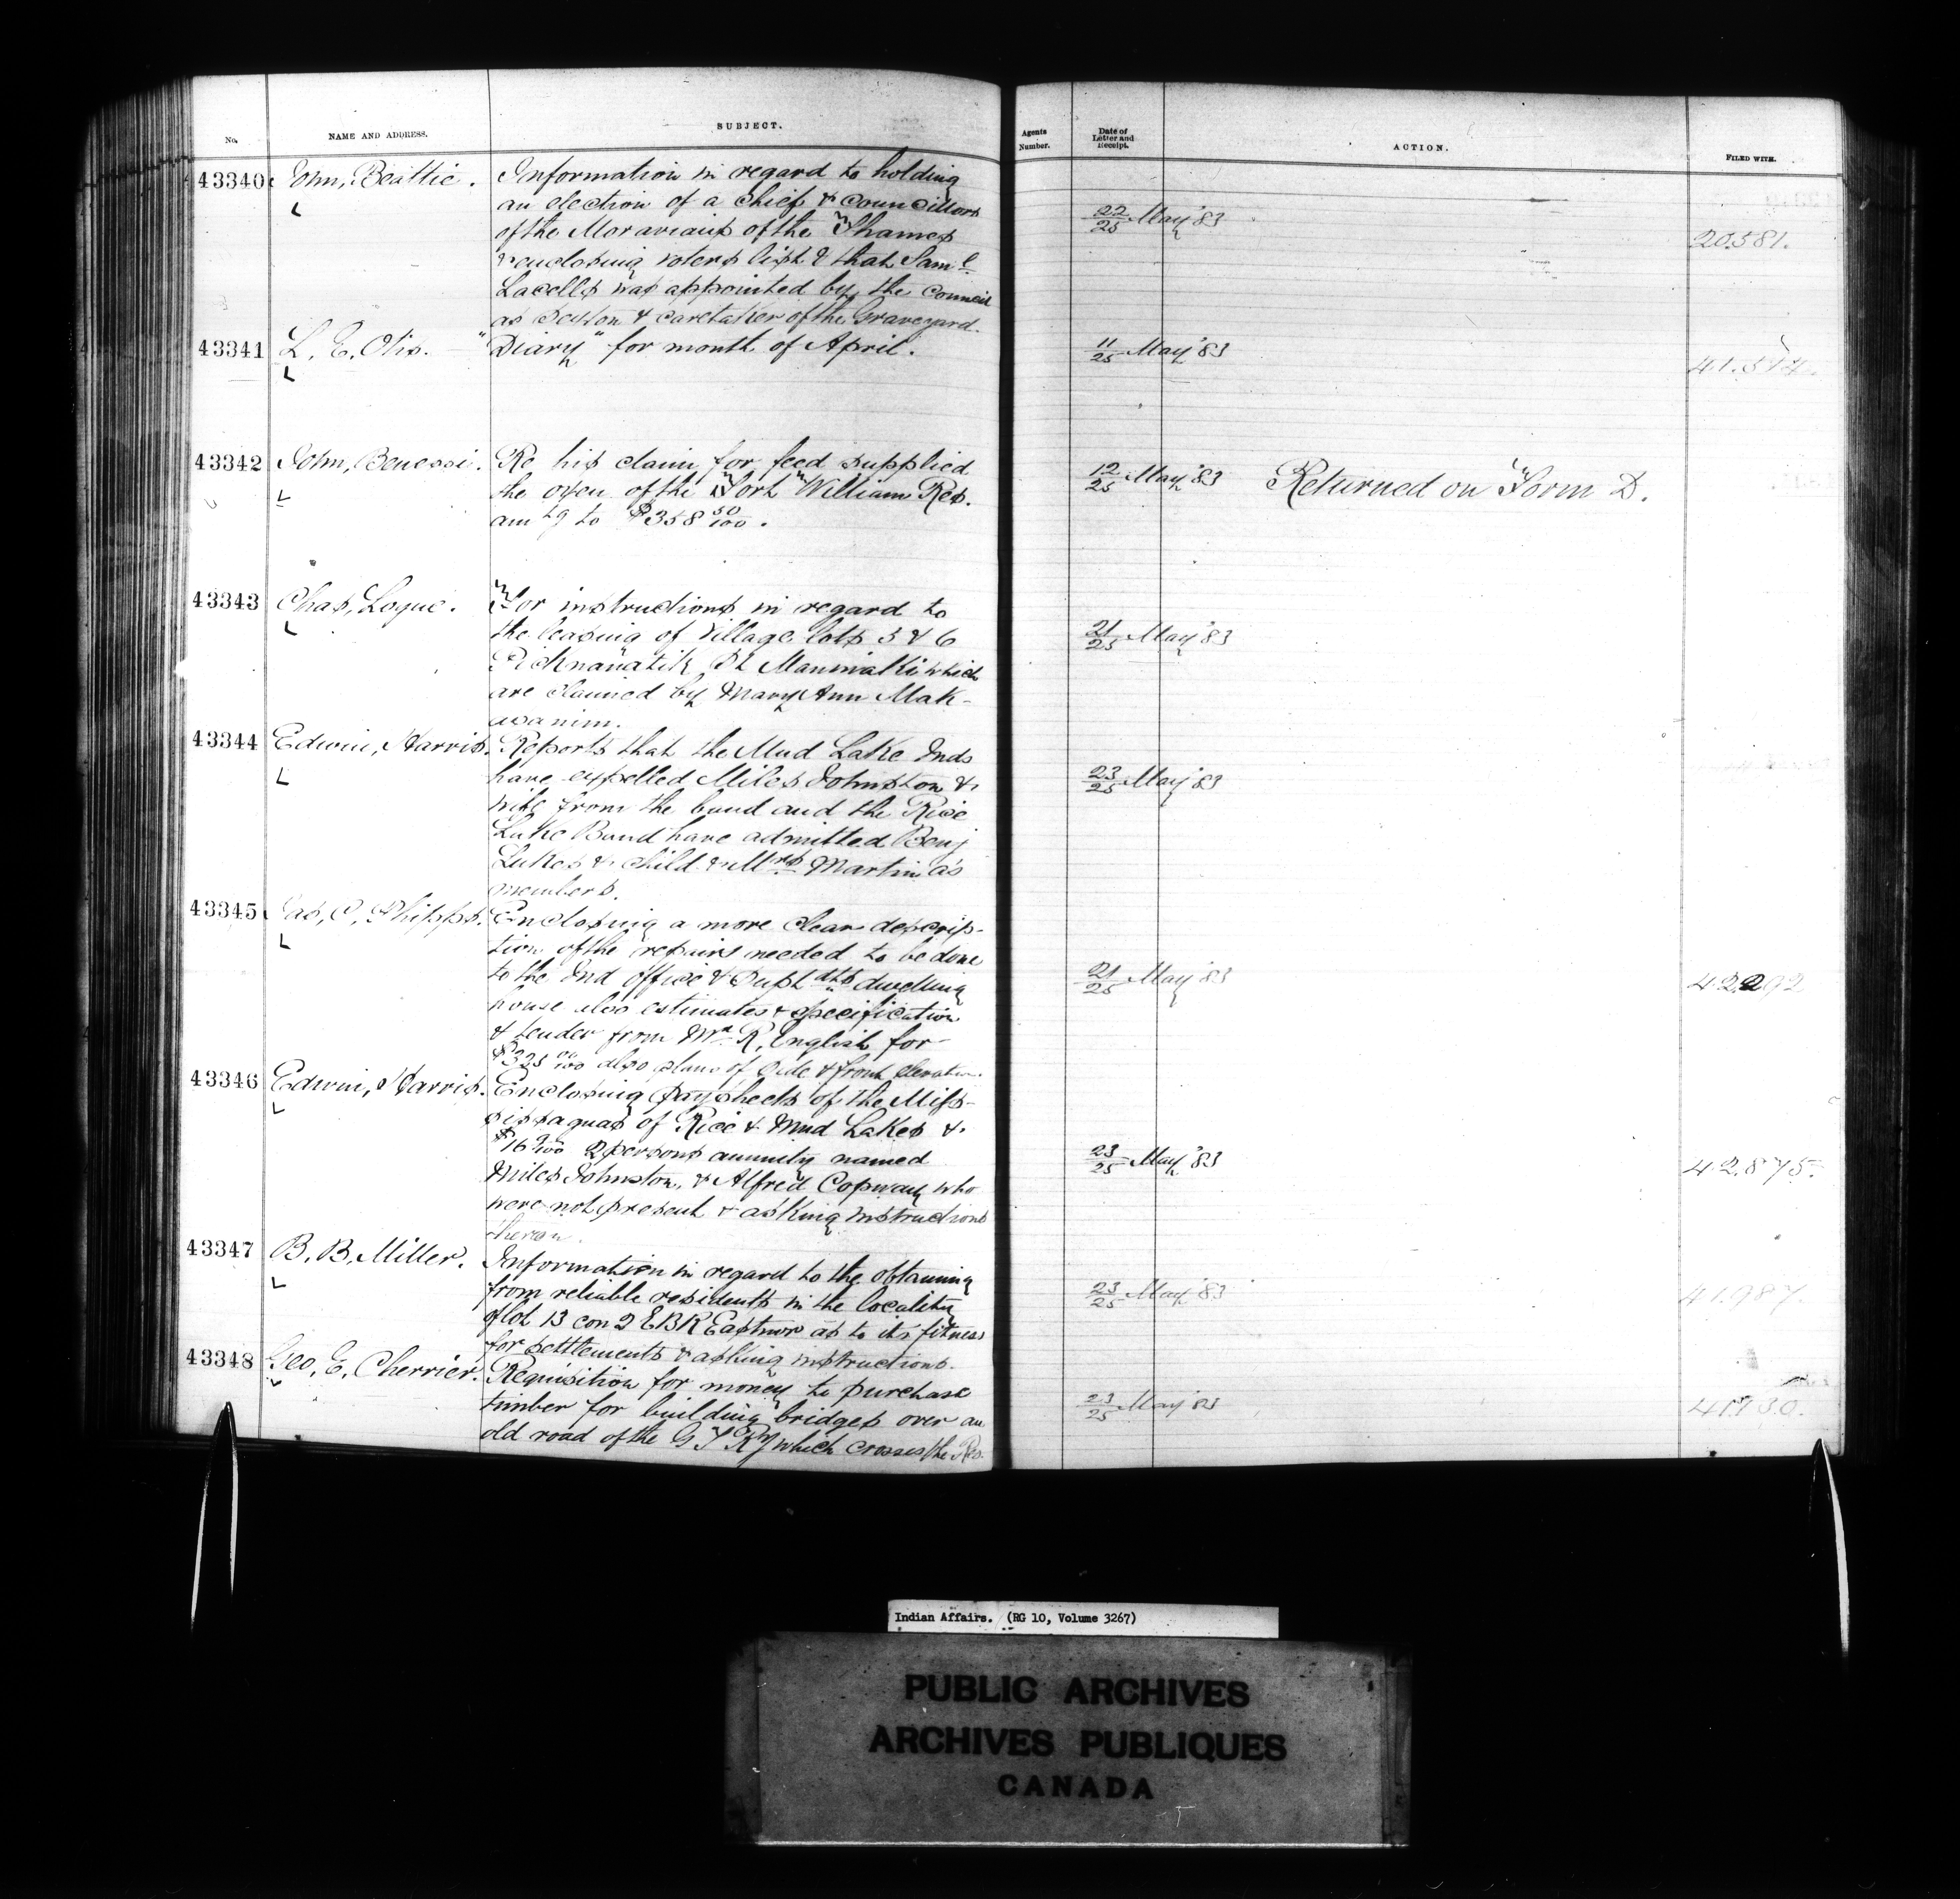 No. NAME AND ADDRESS. SUBJECT. Agents Number. Date of Letter and Receipt. ACTION. FILED WITH.
43340 John, Beattie. Information in regard to holding
an election of a chief & councillors 22/25 May '83
of the Moravians of the Thames 20.581.
& enclosing voters list & that Sam l
Lacells was appointed by the council
as Sexton & caretaker of the Graveyard.
43341 L. E. Otis. "Diary" for month of April. 11/25 May '83
43342 John, Benessi. Re his claim for feed supplied
the oxen of the Fort William Res. 12/25 May '83 Returned on Form D.
am tg to $358 50/100.
43343 Chas, Logue. For instructions in regard to
the leasing of Village lots 5 & 6 21/25 May '83
St Maniwaki which
are claimed by Mary Ann Mak-
wanim.
43344 Edwin, Harris. Reports that the Mud Lake Inds
have expelled Miles Johnston & 23/25 May '83
wife from the band and the Rice
Lake Band have admitted Benj
Lukes & child & Mrs Martin as
members.
43345 Jas, C, Phipps. Enclosing a more clear descrip-
tion of the repairs needed to be done
to the Ind office & Supt dts dwelling 21/25 May '83 42292
house also estimates & specification
& tender from Mr R, English for
$325 00/100 also plans of side & front elevation.
43346 Edwin, Harris. Enclosing paysheets of the Miss-
issaguas of Rice & Mud Lakes &
$16 2 persons annuity named 23/25 May '83 42.875.
Miles Johnston, & Alfred Copway who
were not present & asking instructions
thereon.
43347 B. B. Miller. Information in regard to the obtaining
from reliable residents in the locality 23/25 May '83 41.987.
of lot 13 con 2 EBR Eastnor as to it's fitness
for settlements & asking instructions.
43348 Geo, E, Cherrier. Requisition for money to purchase
timber for building bridges over an 23/25 May '83 41730.
old road of the G T Ry which crosses the Res.
Indian Affairs. (RG 10, Volume 3267)
PUBLIC ARCHIVES
ARCHIVES PUBLIQUES
CANADA